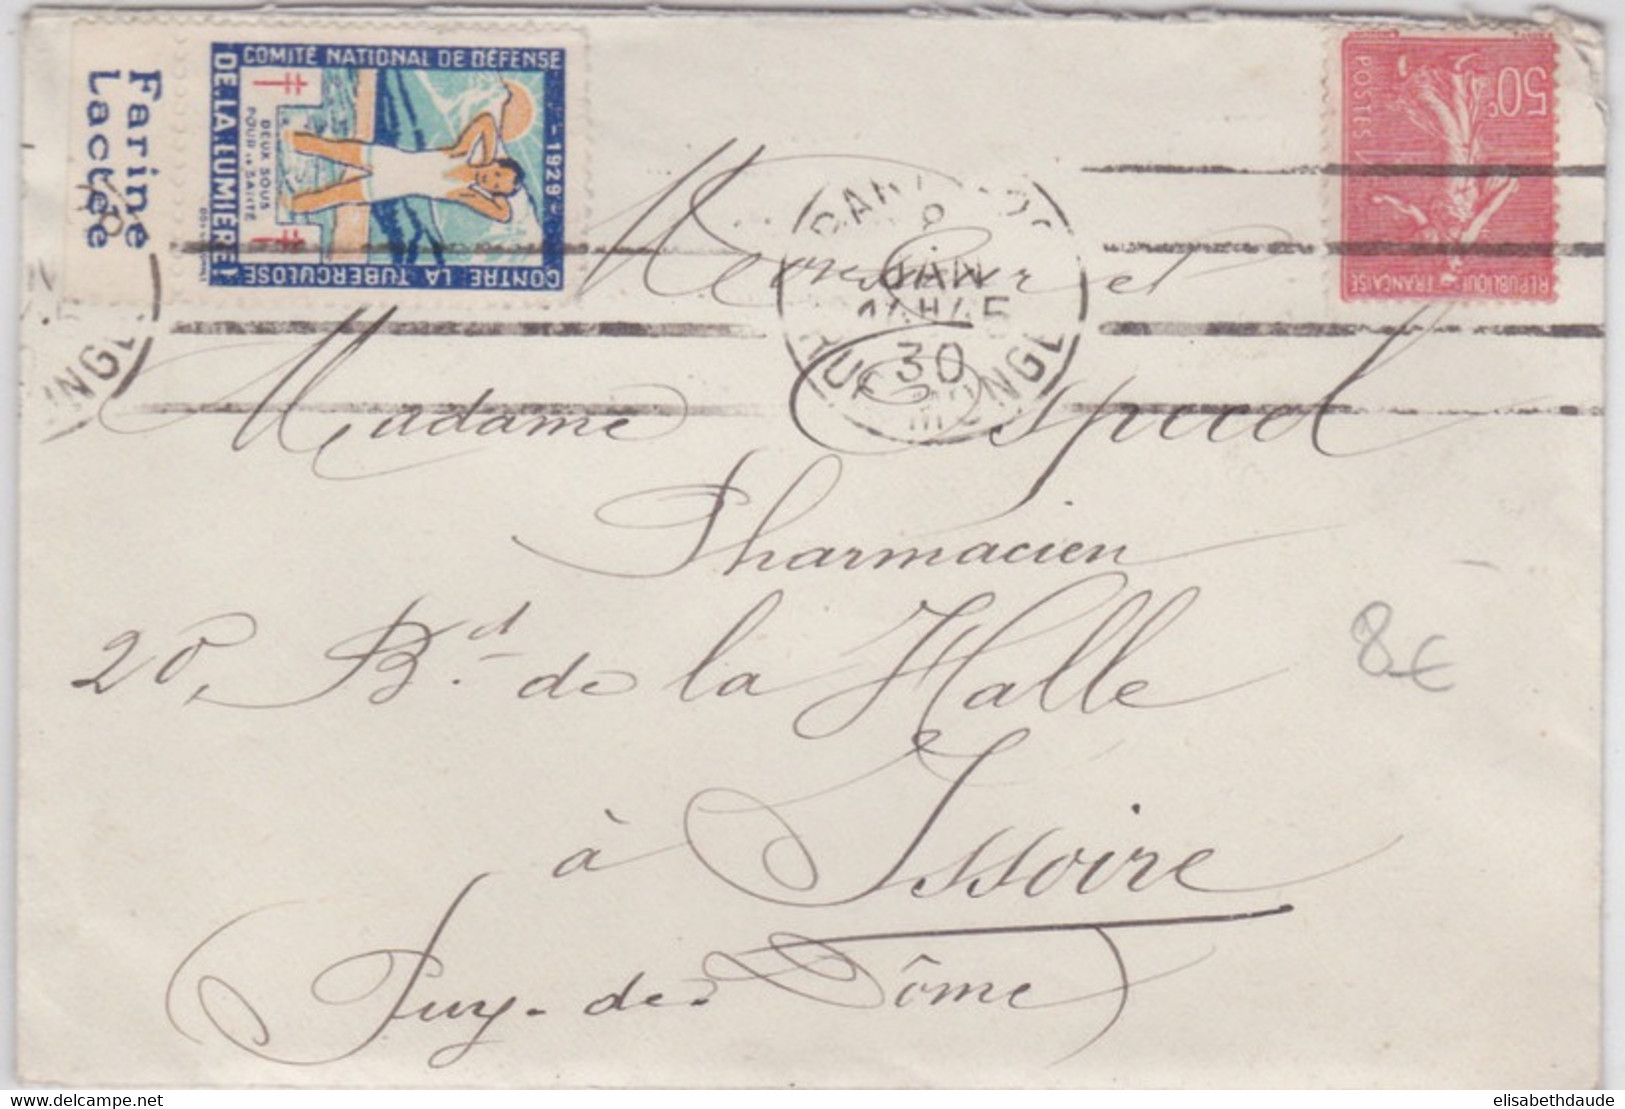 Farine
Lactée
COMITÉ NATIONAL DE DÉFENSE
1929
CONTRE LA TUBERCULOSE
DE LA LUMIÈRE!
DEUX SOUS
POUR LA SANTÉ
50c
POSTES
REPUBLIQUE FRANCAISE
8
JAN
30
RUE MONGE
NGE
Monsieur et
Madame
Pharmacien
20, Bd. de la Halle
8€
à Issoire
Puy-de-Dôme
www.delcampe.net
elisabethdaude